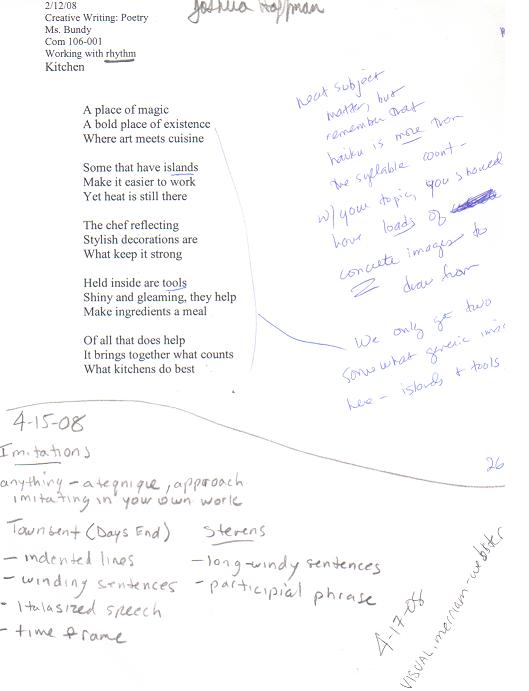 2/12/08
Joshua Hoffman
Creative Writing: Poetry
Ms. Bundy
Com 106-001
Working with rhythm
Kitchen
A place of magic
A bold place of existence
Where art meets cuisine
Some that have islands
Make it easier to work
Yet heat is still there
The chef reflecting
Stylish decorations are
What keep it strong
Held inside are tools
Shiny and gleaming, they help
Make ingredients a meal
Of all that does help
It brings together what counts
What kitchens do best
neat subject
matter, but
remember that
haiku is more than
the syllable count -
w/ your topic, you should
have loads of
concrete images to
draw from
We only get two
somewhat generic
here - islands + tools
26
4-15-08
Imitations
anything - a teqnique, approach
imitating in your own work
Townsent (Days End)
- indented lines
- winding sentences
- Italasized speech
- time frame
Stevens
- long-windy sentences
- participial phrase
4-17-08
VISUAL.merriam-webster